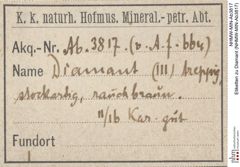 K. k. naturh. Hofmus. Mineral.-petr. Abt.
Akq.-Nr. Ab. 3817. (v. A. f. 664)
Name Diamant (III) treppig,
stockartig, rauchbraun
11/16 Kar. gut
Fundort
NHMW-MIN-Ab3817
Etiketten zu Diamant (NHMW-MIN-Ab3817)